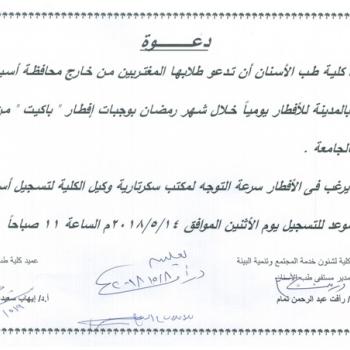 دعـــــوة
كلية طب الأسنان أن تدعو طلابها المغتربين من خارج محافظة أسي
بالمدينة للأفطار يومياً خلال شهر رمضان بوجبات إفطار " باكيت " من
لجامعة .
يرغب فى الأفطار سرعة التوجه لمكتب سكرتارية وكيل الكلية لتسجيل أس
موعد للتسجيل يوم الأثنين الموافق ٢٠١٨/٥/١٤م الساعة ١١ صباحاً
لكلية لشئون خدمة المجتمع وتنمية البيئة
عميد كلية ط
مدير مستشفى طب الأسنان
رأفت عبد الرحمن تمام
أ.د/ إيهاب سعيد